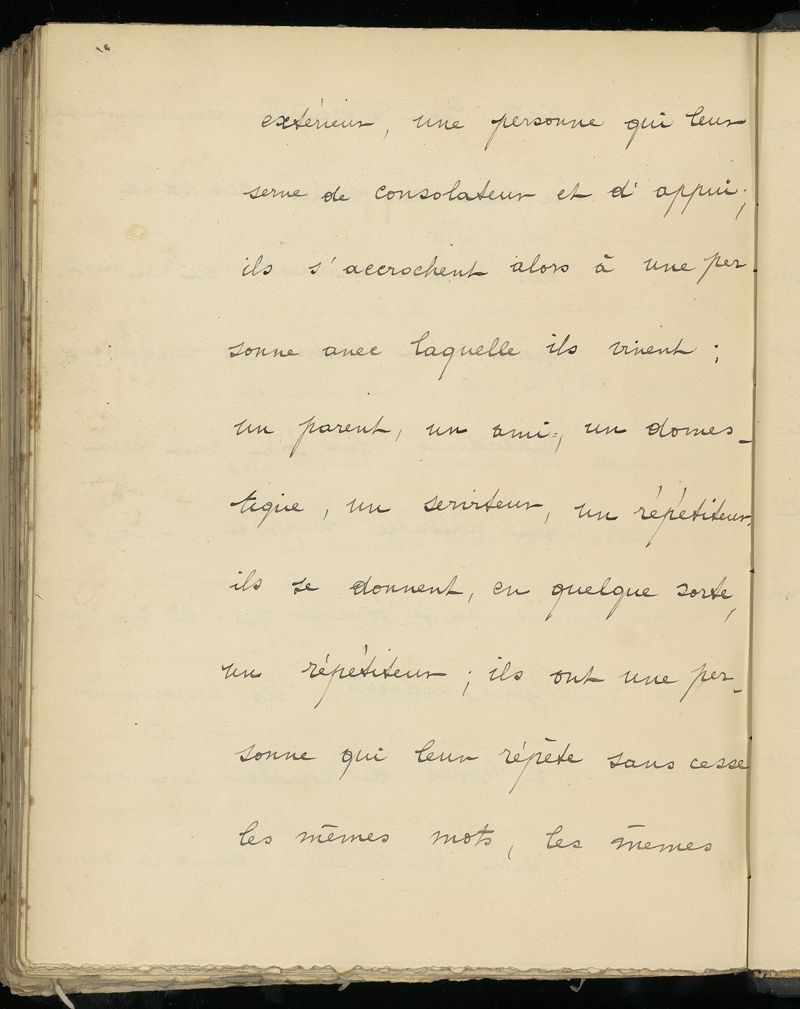 extérieur, une personne qui leur
serve de consolateur et d'appui;
ils s'accrochent alors à une per-
sonne avec laquelle ils vivent;
un parent, un ami, un domes-
tique, un serviteur, un répétiteur.
ils se donnent, en quelque sorte,
un répétiteur; ils ont une per-
sonne qui leur répète sans cesse
les mêmes mots, les mêmes